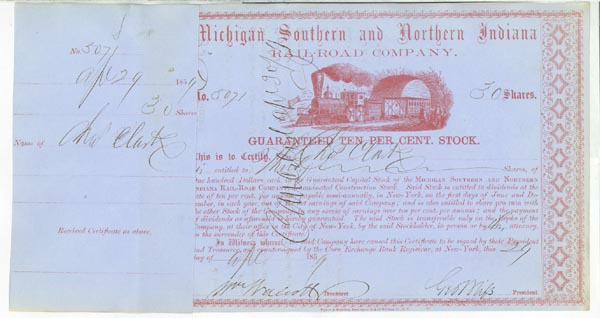 No. 5071
Apl 29 1859
30 Shares
Name of Chas Clark
Received Certificate as above,
Michigan Southern and Northern Indiana
RAIL-ROAD COMPANY.
No. 5071
30 Shares.
GUARANTEED TEN PER CENT. STOCK.
This is to Certify, Chas Clark
is entitled to Thirty Shares, of
One hundred Dollars each of the Guaranteed Capital Stock of the MICHIGAN SOUTHERN AND NORTHERN
INDIANA RAIL-ROAD COMPANY, denominated Construction Stock. Said Stock is entitled to dividends at the
rate of ten per cent. per annum, payable semi-annually, in New-York, on the first days of June and De-
cember, in each year, out of the net earnings of said Company; and is also entitled to share pro rata with
the other Stock of the Company in any excess of earnings over ten per cent. per annum; and the payment
of dividends as aforesaid is hereby guaranteed. The said Stock is transferable only on the books of the
Company, at their office in the City of New-York, by the said Stockholder, in person or by attorney,
on the surrender of this Certificate.
In Witness whereof, the said Company have caused this Certificate to be signed by their President
and Treasurer, and countersigned by the Corn Exchange Bank Registrar, at New-York, this 29
day of Apl 1859
Treasurer
President